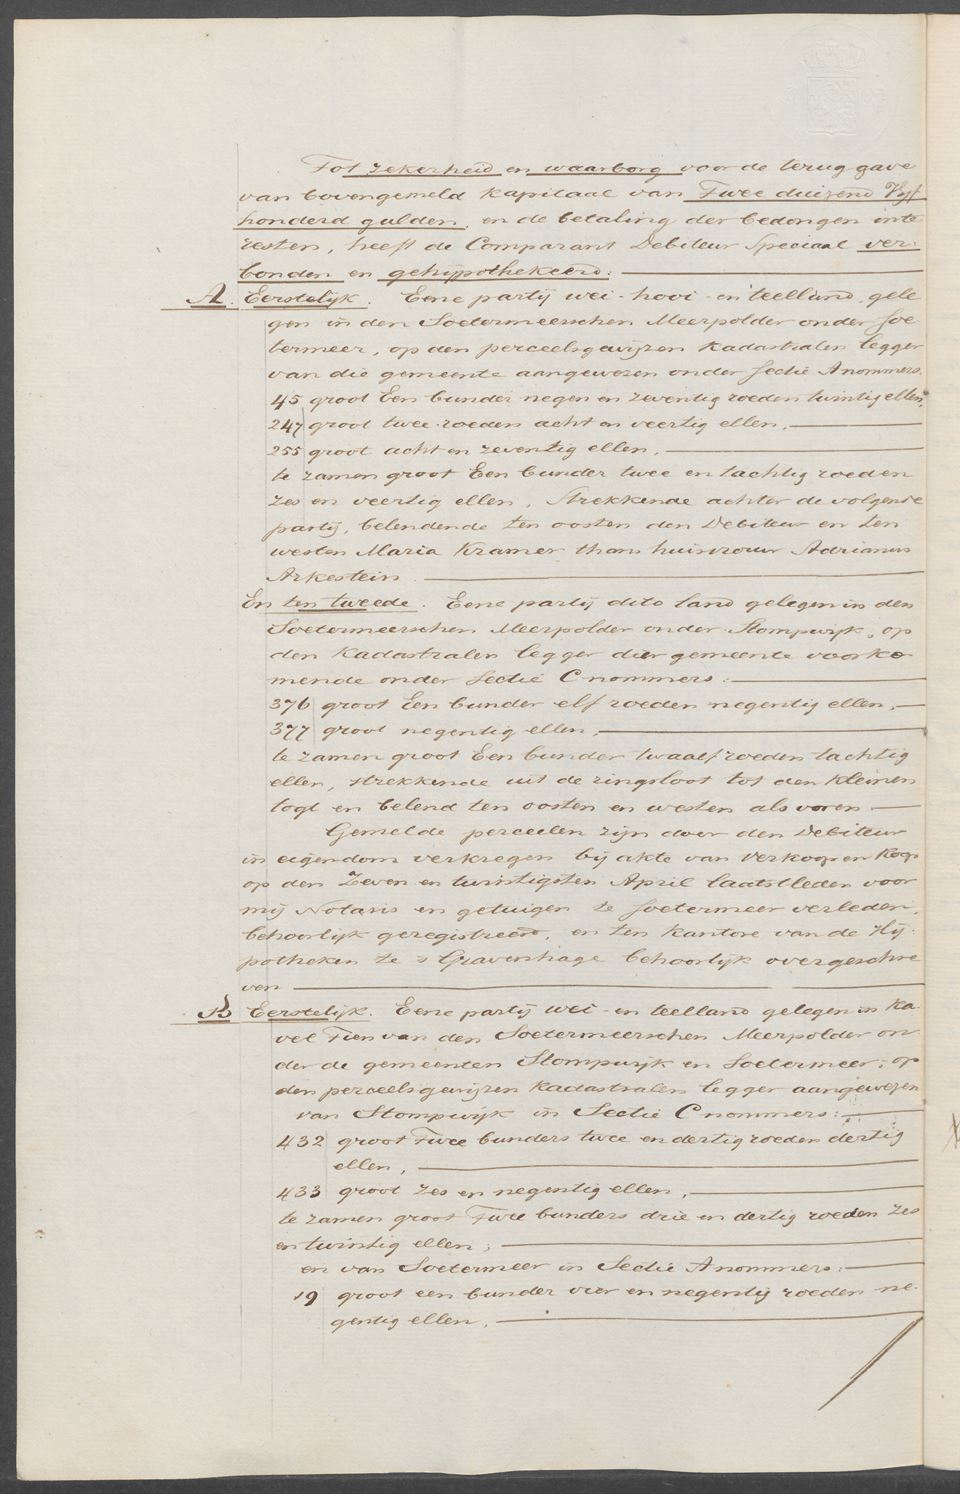 Tot zekerheid en waarborg voor de terug gave
van bovengemeld kapitaal van Twee duizend Vijf
honderd gulden, en de betaling der bedongen inte
resten, heeft de Comparant Debiteur Speciaal ver-
bonden en gehijpothekeerd:
A. Eerstelijk. Eene partij wei- hooi- en teelland, gele
gen in den Soetermeerschen Meerpolder onder Soe
termeer, op den perceelsgewijzen kadastralen legger
van die gemeente aangewezen onder Sectie A nommers.
45 groot Een bunder negen en zeventig roeden twintig ellen,
247 groot twee roeden acht en veertig ellen,
255 groot acht en zeventig ellen,
te zamen groot Een bunder twee en tachtig roeden
zes en veertig ellen, Strekkende achter de volgende
partij, belendende ten oosten den Debiteur en ten
westen Maria Kramer thans huisvrouw Adrianus
Arkestein.
En ten tweede. Eene partij dito land gelegen in den
Soetermeerschen Meerpolder onder Stompwijk, op
den Kadastralen legger dier gemeente voorko
mende onder Sectie C nommers:
376 groot Een bunder elf roeden negentig ellen,
377 groot negentig ellen,
te zamen groot Een bunder twaalf roeden tachtig
ellen, strekkende uit de ringsloot tot den kleinen
togt en belend ten oosten en westen als voren
Gemelde perceelen zijn door den Debiteur
in eigendom verkregen bij akte van Verkoop en Koop
op den Zeven en twintigsten April laatstleden voor
mij Notaris en getuigen te Soetermeer verleden,
behoorlijk geregistreerd, en ten kantore van de Hij-
potheken te s Gravenhage behoorlijk overgeschre
ven
B Eerstelijk. Eene partij wei- en teelland gelegen in Ka-
vel Tien van den Soetermeerschen Meerpolder on
der de gemeenten Stompwijk en Soetermeer, op
den perceelsgewijzen kadastralen legger aangewezen
van Stompwijk in Sectie C nommers:
432 groot Twee bunders twee en dertig roeden dertig
ellen,
433 groot zes en negentig ellen,
te zamen groot Twee bunders drie en dertig roeden zes
en twintig ellen;
en van Soetermeer in Sectie A nommers:
19 groot een bunder vier en negentig roeden ne-
gentig ellen,